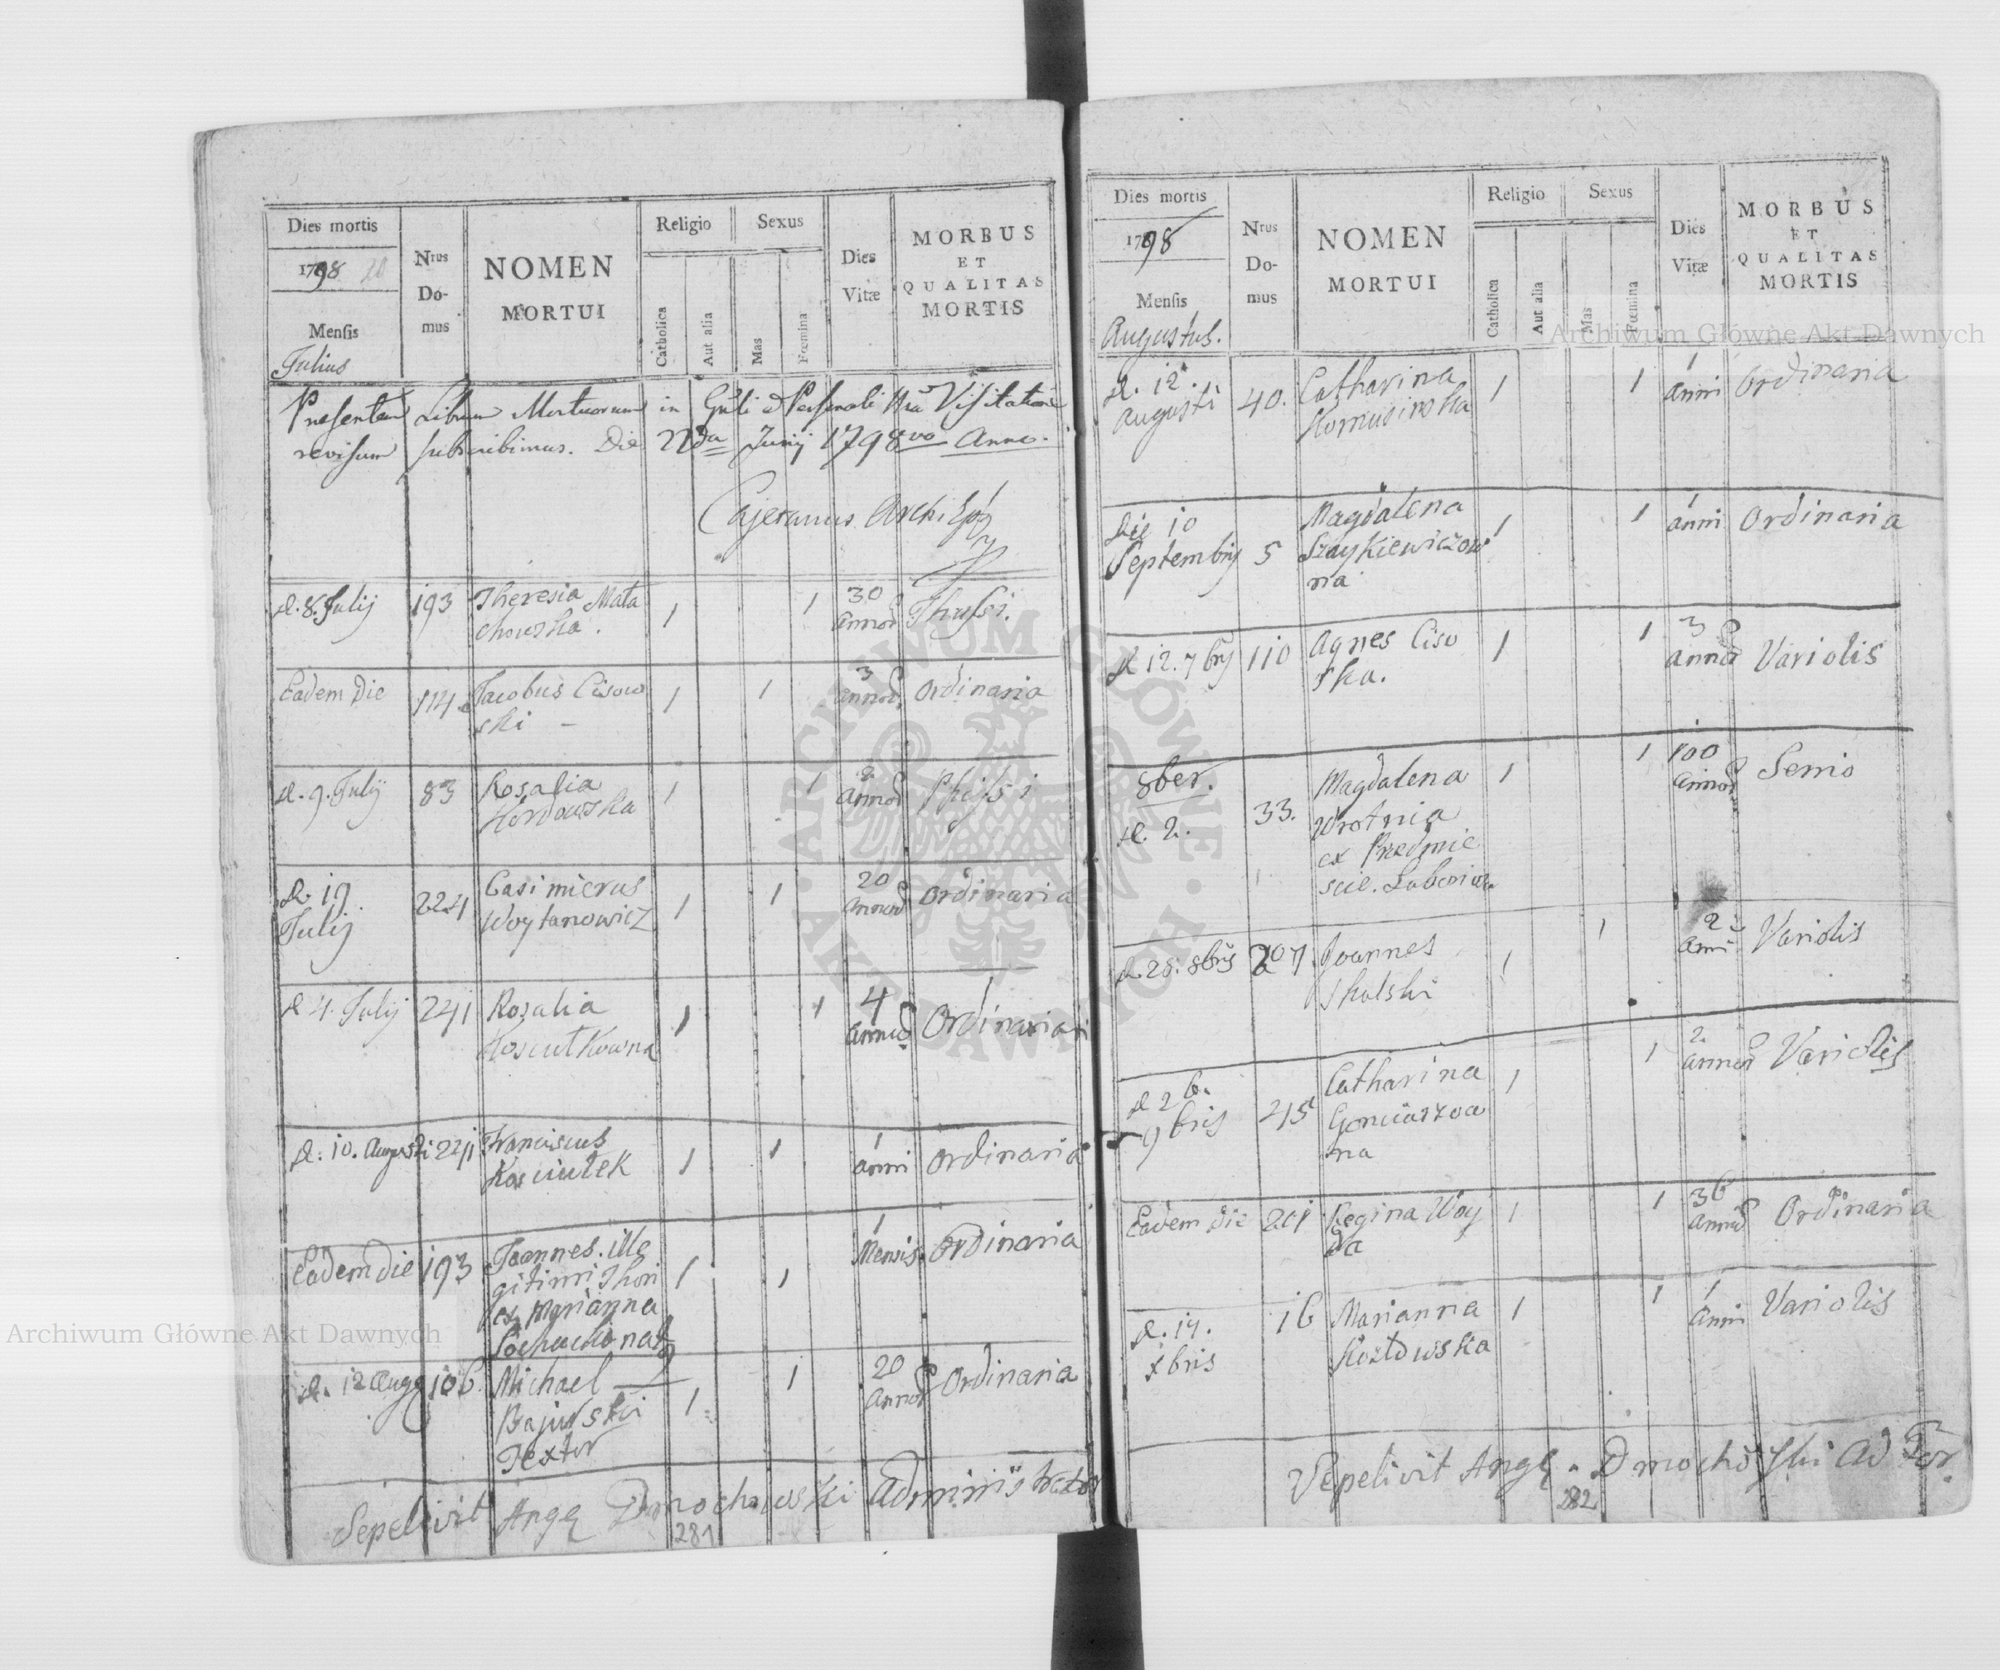 Dies mortis
1798 20
Mensis
Julius
Nrus
Do-
mus
NOMEN
MORTUI
Religio
Catholica
Aut alia
Sexus
Mas
Fœmina
Dies
Vitæ
MORBUS
ET
QUALITAS
MORTIS
Presentem Librum Mortuorum in Gñli et Personali Nrã Visitatione
revisum subscribimus. Die 22da Junij 1798vo Anno.
Cajetanus
d. 8. Julij 193 Theresia Mala
chowska. 1 1 30
Annor
Eadem Die 114 Jacobus Cisow
ski - 1 1 3
annor Ordinaria
d. 9. Julij 83 Rosalia
1 1 2
Annor Phisi
d. 19
Julij 224 Casimirus
Woytanowicz 1 1 20
Ordinaria
d 4. Julij 241 Rosalia
Kosciutkowna 1 1 4
Annor Ordinaria
d. 10. Augusti 241 Franciscus
Kosciutek 1 1 1
anni Ordinaria
Eadem die 193 Joannes. ille
gitimi Thori
ex Marianna
1 1 1
Mensis Ordinaria
d. 12 Augq 106. Michael
Textor 1 1 20
Annor Ordinaria
Sepelivit Angq Dmochowski Administrator
281
Dies mortis
1798
Mensis
Augustus.
Nrus
Do-
mus
NOMEN
MORTUI
Religio
Catholica
Aut alia
Sexus
Mas
Fœmina
Dies
Vitæ
MORBUS
ET
QUALITAS
MORTIS
d. 12.
Augusti 40. Catharina
1 1 1
Anni Ordinaria
Die 10
Septembris 5 Magdalena
Szaykiewiczow
na 1 1 1
anni Ordinaria
d 12. 7bris 110 Agnes Cisow
ska. 1 1 3
annor Variolis
8ber.
d. 2. 33. Magdalena
Wrotnia
ex Predmie
scie. 1 1 100
Annor Senio
d. 28. 8bris 207 Joannes
Skulski 1 1 2
Anni Variolis
d 26.
9bris 215 Catharina
1 1 2.
annor Variolis
Eadem die 201 Regina Woy
da 1 1 36
Annor Ordinaria
d. 14.
xbris 16 Marianna
Kozlowska 1 1 1
Anni Variolis
Sepelivit Angq. Dmochowski
282
Archiwum Główne Akt Dawnych
Archiwum Główne Akt Dawnych
ARCHIWUM GŁÓWNE AKT DAWNYCH